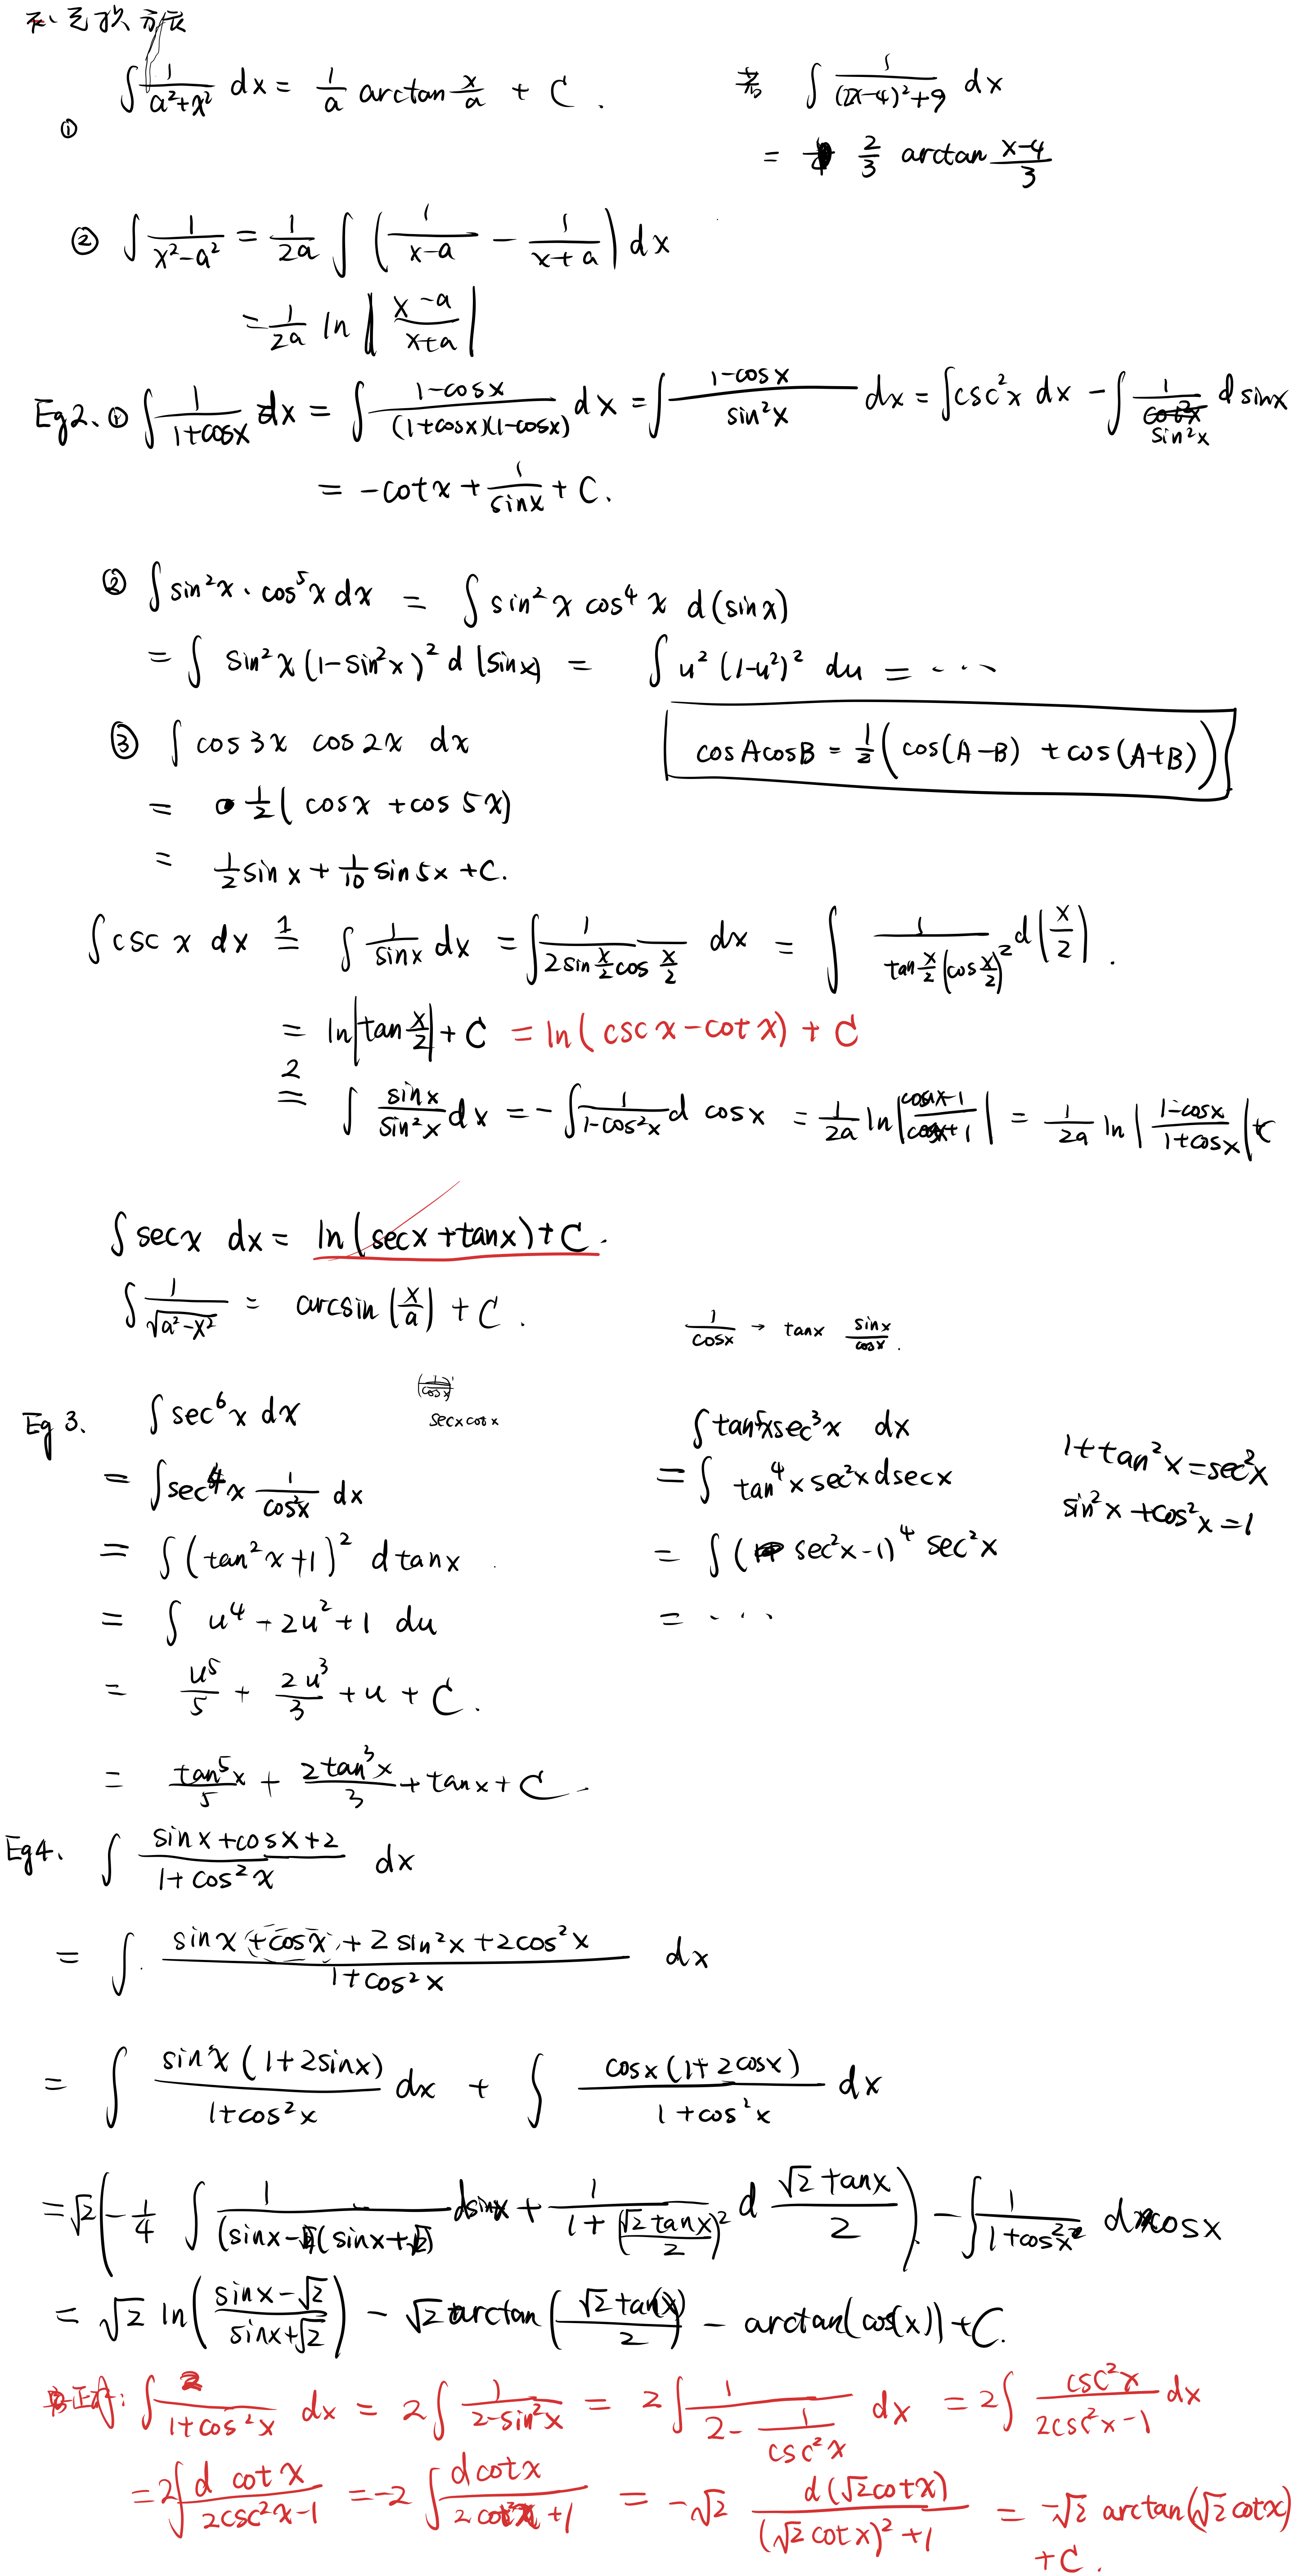 方法
① ∫ 1/(a²+x²) dx = 1/a arctan x/a + C .
若 ∫ 1/((2x-4)²+9) dx
= 2/3 arctan (x-4)/3
② ∫ 1/(x²-a²) = 1/2a ∫ ( 1/(x-a) - 1/(x+a) ) dx
= 1/2a ln | (x-a)/(x+a) |
Eg2、① ∫ 1/(1+cosx) dx = ∫ (1-cosx)/((1+cosx)(1-cosx)) dx = ∫ (1-cosx)/sin²x dx = ∫csc²x dx - ∫ 1/sin²x d sinx
= -cotx + 1/sinx + C.
② ∫ sin²x · cos⁵x dx = ∫ sin²x cos⁴x d(sinx)
= ∫ sin²x (1-sin²x)² d(sinx) = ∫ u² (1-u²)² du = ···
③ ∫ cos3x cos2x dx
cosAcosB = 1/2 ( cos(A-B) + cos(A+B) )
= 1/2 ( cosx + cos5x)
= 1/2 sinx + 1/10 sin5x + C.
∫ csc x dx =1= ∫ 1/sinx dx = ∫ 1/(2sin x/2 cos x/2) dx = ∫ 1/(tan x/2 (cos x/2)²) d(x/2) .
= ln|tan x/2| + C = ln( cscx-cotx) + C
=2= ∫ sinx/sin²x dx = -∫ 1/(1-cos²x) d cosx = 1/2a ln| (cosx-1)/(cosx+1) | = 1/2a ln | (1-cosx)/(1+cosx) |+C
∫ secx dx = ln(secx+tanx)+C.
∫ 1/√(a²-x²) = arcsin (x/a) + C .
1/cosx → tanx sinx/cosx .
(1/cosx)'
secxcotx
Eg 3. ∫ sec⁶x dx
= ∫sec⁴x 1/cos²x dx
= ∫ (tan²x+1)² d tanx
= ∫ u⁴ + 2u² + 1 du
= u⁵/5 + 2u³/3 + u + C .
= tan⁵x/5 + 2tan³x/3 + tanx + C
∫ tan⁵xsec³x dx
= ∫ tan⁴x sec²x dsecx
= ∫ ( sec²x-1)⁴ sec²x
= ···
1+tan²x=sec²x
sin²x+cos²x=1
Eg4、 ∫ (sinx+cosx+2)/(1+cos²x) dx
= ∫ (sinx+cosx+2sin²x+2cos²x)/(1+cos²x) dx
= ∫ sinx(1+2sinx)/(1+cos²x) dx + ∫ cosx(1+2cosx)/(1+cos²x) dx
= √2 ( -1/4 ∫ 1/((sinx-√2)(sinx+√2)) dsinx + 1/(1+(√2tanx/2)²) d √2tanx/2 ) - ∫ 1/(1+cos²x) dcosx
= √2 ln( (sinx-√2)/(sinx+√2) ) - √2arctan ( √2tan(x)/2 ) - arctan(cos(x))+C.
正确: ∫ 2/(1+cos²x) dx = 2∫ 1/(2-sin²x) = 2∫ 1/(2-1/csc²x) dx = 2∫ csc²x/(2csc²x-1) dx
= 2∫ d cotx/(2csc²x-1) = -2 ∫ dcotx/(2cot²x+1) = -√2 d(√2cotx)/((√2cotx)²+1) = -√2 arctan(√2cotx)
+C .